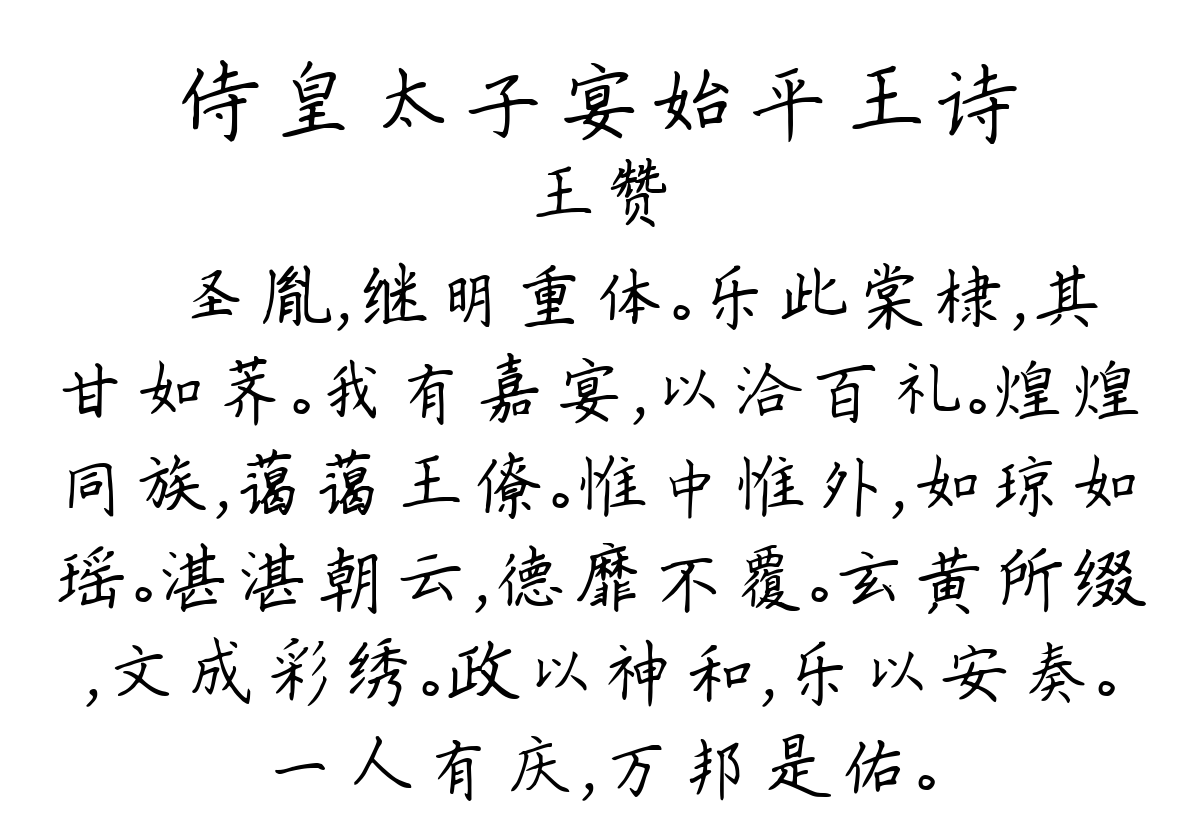 侍皇太子宴始平王诗
王赞
圣胤,继明重体。乐此棠棣,其
甘如荠。我有嘉宴,以洽百礼。煌煌
同族,蔼蔼王僚。惟中惟外,如琼如
瑶。湛湛朝云,德靡不覆。玄黄所缀
,文成彩绣。政以神和,乐以安奏。
一人有庆,万邦是佑。